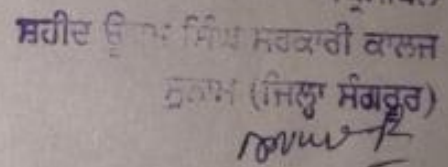 ਸ਼ਹੀਦ ਊਧਮ ਸਿੰਘ ਸਰਕਾਰੀ ਕਾਲਜ
ਸੁਨਾਮ (ਜਿਲ੍ਹਾ ਸੰਗਰੂਰ)